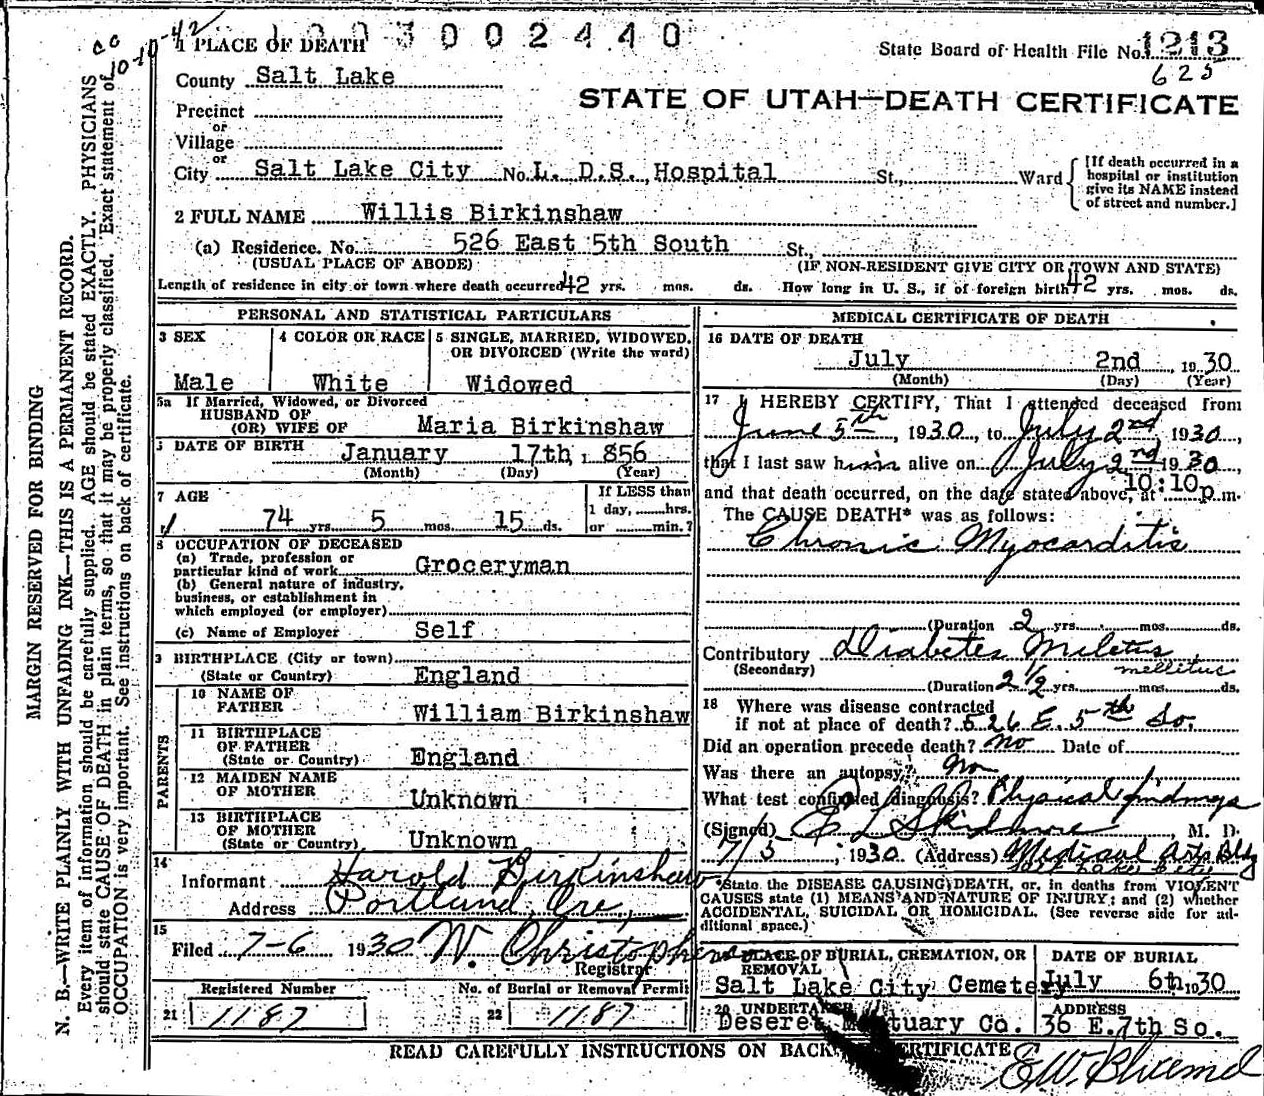 1003002440
State Board of Health File No. 1213
625
10-10-42
1 PLACE OF DEATH
STATE OF UTAH—DEATH CERTIFICATE
County Salt Lake
Precinct
or
Village
or
City Salt Lake City No. L. D.S. Hospital St., Ward
[If death occurred in a
hospital or institution
give its NAME instead
of street and number.]
2 FULL NAME Willis Birkinshaw
(a) Residence. No. 526 East 5th South St.,
(USUAL PLACE OF ABODE) (IF NON-RESIDENT GIVE CITY OR TOWN AND STATE)
Length of residence in city or town where death occurred 42 yrs. mos. ds. How long in U. S., if of foreign birth? 42 yrs. mos. ds.
PERSONAL AND STATISTICAL PARTICULARS
3 SEX 4 COLOR OR RACE 5 SINGLE, MARRIED, WIDOWED,
OR DIVORCED (Write the word)
Male White Widowed
5a If Married, Widowed, or Divorced
HUSBAND OF
(OR) WIFE OF Maria Birkinshaw
DATE OF BIRTH January 17th, 1856
(Month) (Day) (Year)
7 AGE If LESS than
1 day, hrs.
74 yrs. 5 mos. 15 ds. or min.?
8 OCCUPATION OF DECEASED
(a) Trade, profession or
particular kind of work Groceryman
(b) General nature of industry,
business, or establishment in
which employed (or employer)
(c) Name of Employer Self
9 BIRTHPLACE (City or town)
(State or Country) England
PARENTS
10 NAME OF
FATHER William Birkinshaw
11 BIRTHPLACE
OF FATHER
(State or Country) England
12 MAIDEN NAME
OF MOTHER Unknown
13 BIRTHPLACE
OF MOTHER
(State or Country) Unknown
14
Informant Harold Birkinshaw
Address Portland, Ore,
15
Filed 7-6 1930 W. Christophenson
Registrar
Registered Number No. of Burial or Removal Permit
21 1187 22 1187
MEDICAL CERTIFICATE OF DEATH
16 DATE OF DEATH
July 2nd, 1930
(Month) (Day) (Year)
17 I HEREBY CERTIFY, That I attended deceased from
June 5th, 1930, to July 2nd, 1930,
that I last saw him alive on July 2nd 1930,
and that death occurred, on the date stated above, at 10:10p m.
The CAUSE DEATH* was as follows:
Chronic Myocarditis
(Duration 2 yrs. mos. ds.
Contributory Diabetes Miletus
(Secondary) mellitus
(Duration 2 1/2 yrs. mos. ds.
18 Where was disease contracted
if not at place of death? 526 E. 5th So.
Did an operation precede death? No Date of
Was there an autopsy? No
What test confirmed diagnosis? Physical findings
(Signed) E L Skidmore, M. D.
7/5, 1930 (Address) Medical Arts Bldg
Salt Lake City
*State the DISEASE CAUSING DEATH, or, in deaths from VIOLENT
CAUSES state (1) MEANS AND NATURE OF INJURY; and (2) whether
ACCIDENTAL, SUICIDAL OR HOMICIDAL. (See reverse side for ad-
ditional space.)
PLACE OF BURIAL, CREMATION, OR
REMOVAL
Salt Lake City Cemetery
DATE OF BURIAL
July 6th, 1930
20 UNDERTAKER
Deseret Mortuary Co.
ADDRESS
36 E.7th So.
READ CAREFULLY INSTRUCTIONS ON BACK CERTIFICATE
MARGIN RESERVED FOR BINDING
N. B.—WRITE PLAINLY WITH UNFADING INK—THIS IS A PERMANENT RECORD.
Every item of information should be carefully supplied. AGE should be stated EXACTLY. PHYSICIANS
should state CAUSE OF DEATH in plain terms, so that it may be properly classified. Exact statement of
OCCUPATION is very important. See instructions on back of certificate.